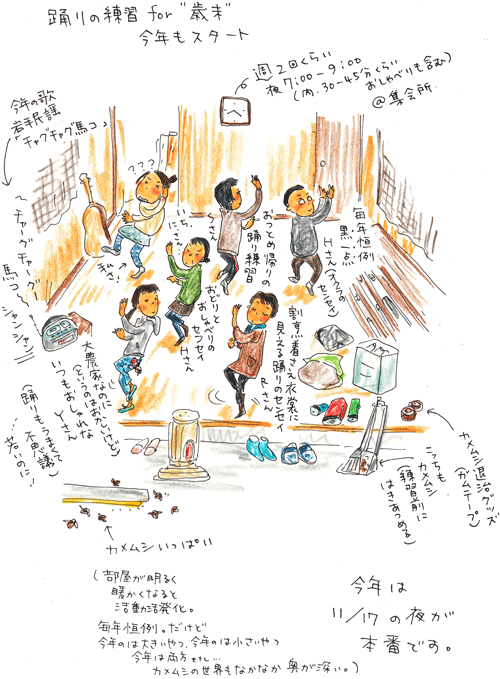 踊りの練習 for "歳末"
今年もスタート
週2回くらい
夜7:00-9:00
(内、30-45分くらい
おしゃべりも含む)
@集会所
今年の歌
岩手民謡
チャグチャグ馬コ
〜チャグチャグ
馬コ〜
シャンシャン
???
私さ!
いち、
に、さん!
おつとめ帰りの
踊り練習
Sさん
毎年恒例
黒一点
Hさん
おどりと
おしゃべりの
センセイ
Hさん
割烹着さえ衣装に
見える踊りのセンセイ
Rさん
大農家なのに
(というのはおかしいけど)
いつもおしゃれな
Yさん
(踊りもうまくて
不思議)
若いのに!
カメムシ退治グッズ
(ガムテープ)
こっちも
カメムシ
(練習前に
はきあつめる)
カメムシいっぱい
(部屋が明るく
暖かくなると
活動活発化。
毎年恒例。だけど
今年のは大きいやつ、今年のは小さいやつ
今年は両方
カメムシの世界もなかなか奥が深い。)
今年は
11/17の夜が
本番です。